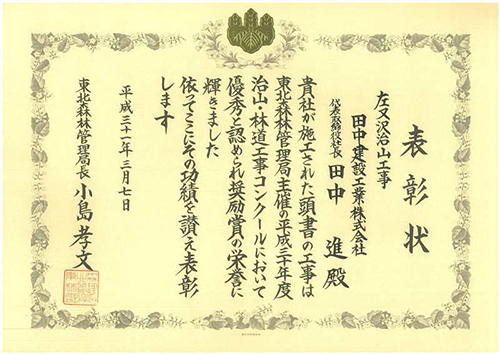 表彰状
左又沢治山工事
田中建設工業株式会社
代表取締役社長 田中 進 殿
貴社が施工された頭書の工事は
東北森林管理局主催の平成三十年度
治山・林道工事コンクールにおいて
優秀と認められ奨励賞の栄誉に
輝きました
依ってここにその功績を讃え表彰
します
平成三十一年三月七日
東北森林管理局長 小島孝文